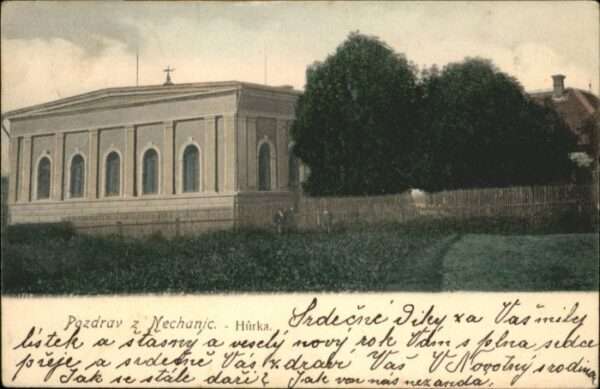 Pozdrav z Nechanic. - Hůrka.
Srdečné díky za Vaš milý
lístek a štasny a veselý nový rok Vám s plna srdce
přeje a srdečně Vás zdraví Váš V Novotný s rodinou
Jak se stále daří? Jak